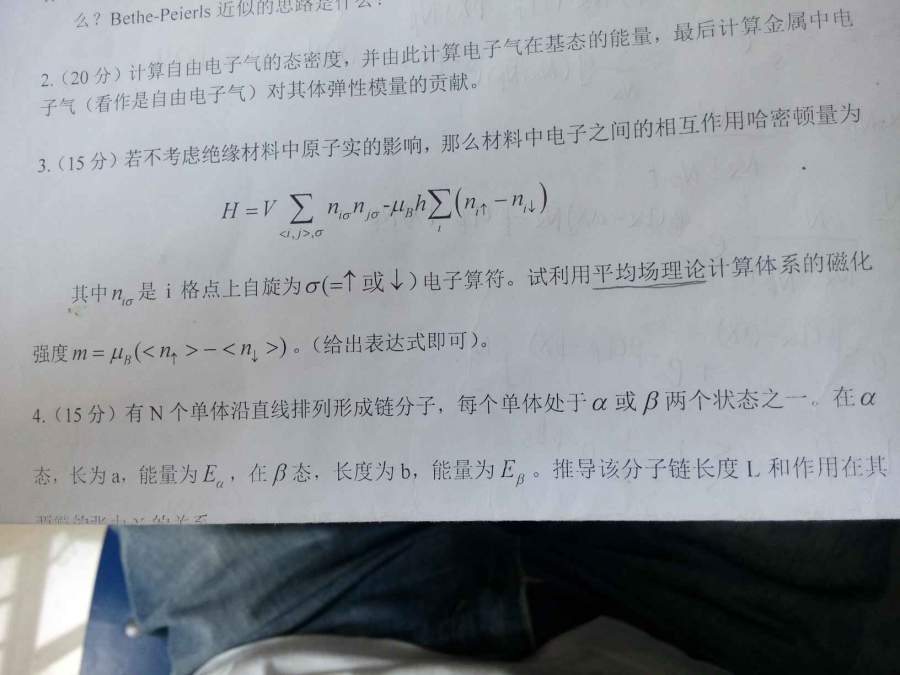 么？Bethe-Peierls 近似的思路是什么？
2.（20 分）计算自由电子气的态密度，并由此计算电子气在基态的能量，最后计算金属中电
子气（看作是自由电子气）对其体弹性模量的贡献。
3.（15 分）若不考虑绝缘材料中原子实的影响，那么材料中电子之间的相互作用哈密顿量为
H = V ∑_{<i,j>,σ} n_{iσ} n_{jσ} - μ_B h ∑_i (n_{i↑} − n_{i↓})
其中 n_{iσ} 是 i 格点上自旋为 σ(=↑ 或 ↓) 电子算符。试利用平均场理论计算体系的磁化
强度 m = μ_B (< n_↑ > − < n_↓ >) 。（给出表达式即可）。
4.（15 分）有 N 个单体沿直线排列形成链分子，每个单体处于 α 或 β 两个状态之一。在 α
态，长为 a，能量为 E_α，在 β 态，长度为 b，能量为 E_β 。推导该分子链长度 L 和作用在其
的关系